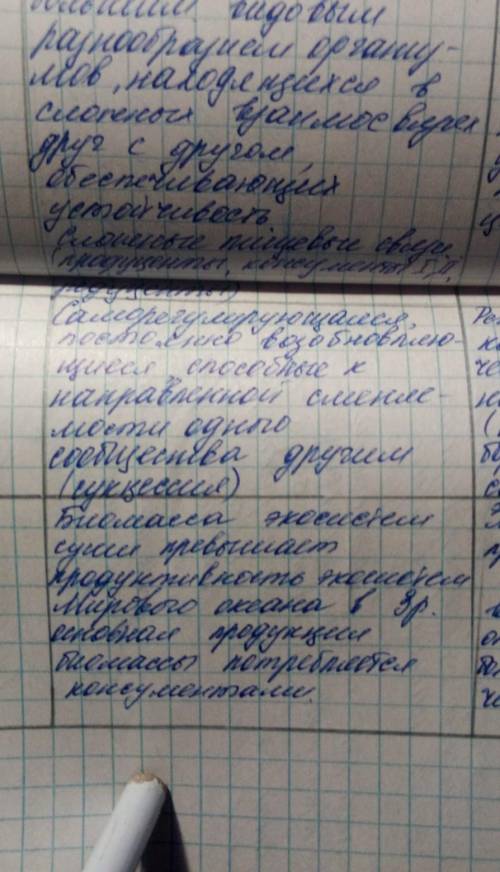 большим видовым
разнообразием организ-
мов, находящихся в
сложных взаимосвязях
друг с другом,
обеспечивающих
устойчивость
Сложные пищевые связи
(продуценты, консументы I, II,
редуценты)
Саморегулирующаяся,
постоянно возобновляю-
щиеся, способные к
направленной сменяе-
мости одного
сообщества другим
(сукцессия)
Биомасса экосистем
суши превышает
продуктивность экосистем
Мирового океана в 3р.
основная продукция
биомассы потребляется
консументами.